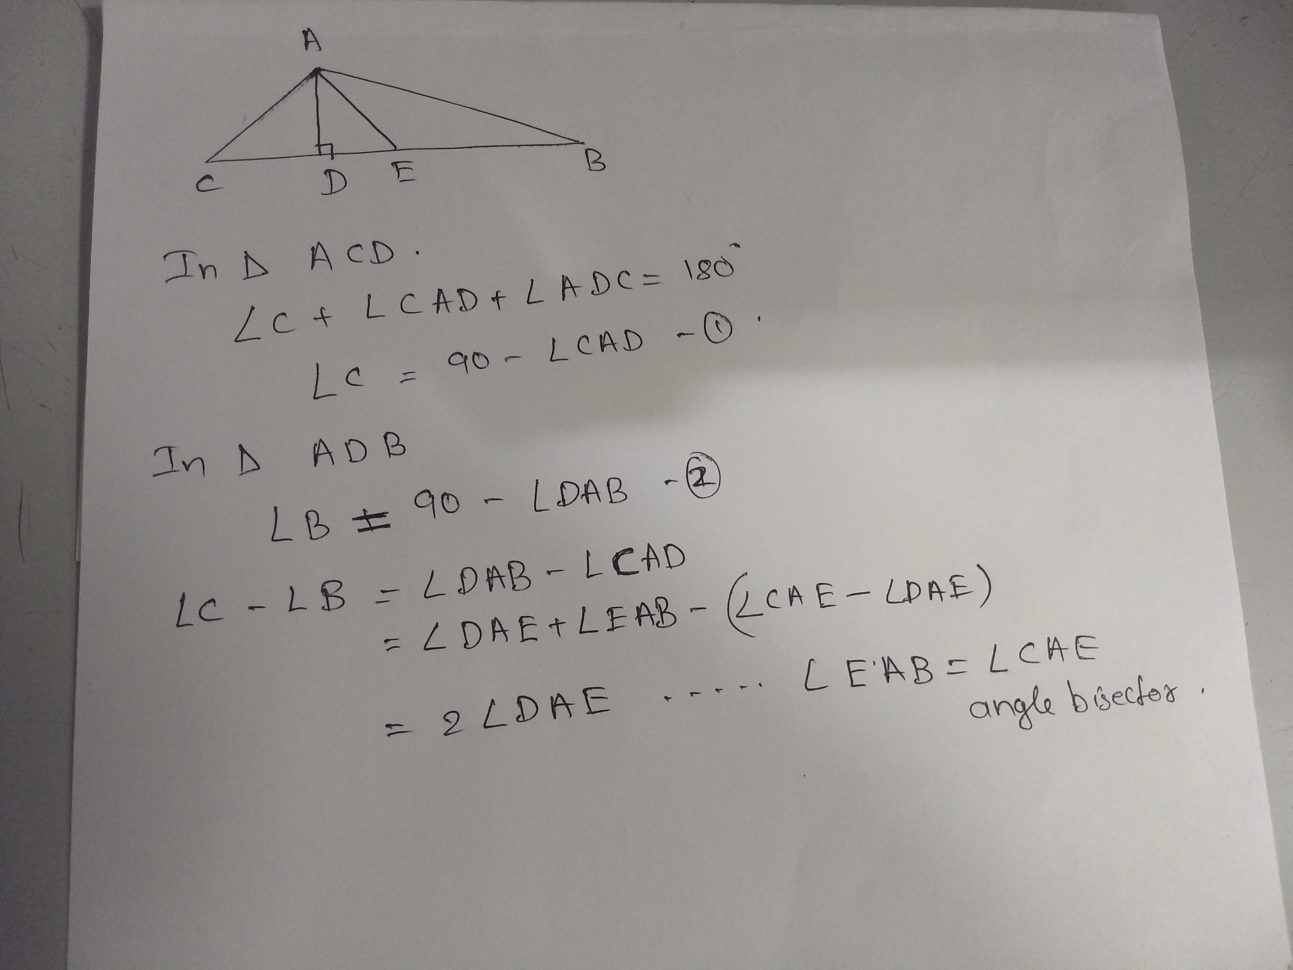 A
C D E B
In Δ ACD.
∠C + ∠CAD + ∠ADC = 180°
∠C = 90 - ∠CAD - ①.
In Δ ADB
∠B = 90 - ∠DAB - ②
∠C - ∠B = ∠DAB - ∠CAD
= ∠DAE + ∠EAB - (∠CAE - ∠DAE)
= 2∠DAE ..... ∠EAB = ∠CAE
angle bisector.